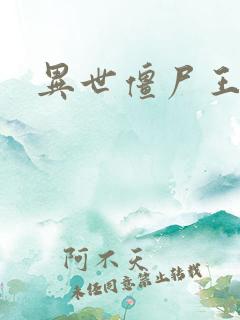 異世僵尸王
阿不天
未经同意禁止转载